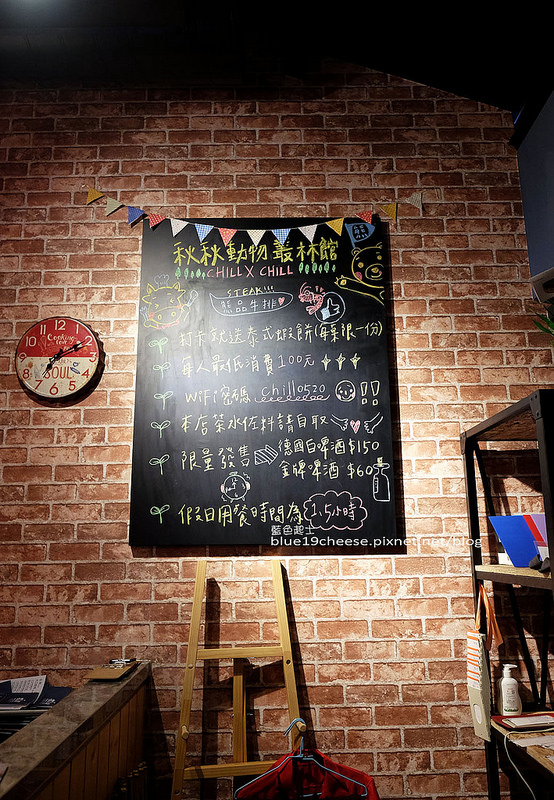 秋秋動物叢林館
CHILL X CHILL
STEAK!!!
熊品牛排
打卡就送泰式蝦餅(每桌限一份)
每人最低消費100元
WiFi密碼 Chill0520
本店茶水佐料請自取
限量發售
德國白啤酒$150
金牌啤酒 $60
假日用餐時間為1.5小時
藍色起士
blue19cheese.pixnet.net/blog
12
1
2
3
4
5
6
7
8
9
10
11
Cooking
SOUL